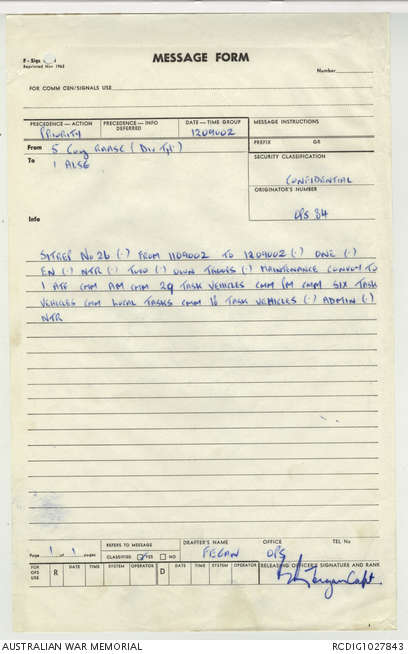 F - Sigs
Reprinted Nov 1965
MESSAGE FORM
Number
FOR COMM CEN/SIGNALS USE
PRECEDENCE—ACTION
PRIORITY
PRECEDENCE—INFO
DEFERRED
DATE—TIME GROUP
120900Z
MESSAGE INSTRUCTIONS
PREFIX GR
From 5 Coy RAASC (Div Tpt)
SECURITY CLASSIFICATION
To 1 ALSG
CONFIDENTIAL
ORIGINATOR'S NUMBER
Info
OPS 84
SITREP No 26 (.) FROM 110900Z TO 120900Z (.) ONE (.)
EN (.) NTR (.) TWO (.) OWN TROOPS (.) MAINTENANCE CONVOY TO
1 ATF CMM AM CMM 29 TASK VEHICLES CMM PM CMM SIX TASK
VEHICLES CMM LOCAL TASKS CMM 16 TASK VEHICLES (.) ADMIN (.)
NTR
Page 1 of 1 pages
REFERS TO MESSAGE
CLASSIFIED YES NO
DRAFTER'S NAME
FEGAN
OFFICE
OPS
TEL No
FOR OPS USE
R DATE TIME SYSTEM OPERATOR D DATE TIME SYSTEM OPERATOR
RELEASING OFFICER'S SIGNATURE AND RANK
Capt
AUSTRALIAN WAR MEMORIAL
RCDIG1027843